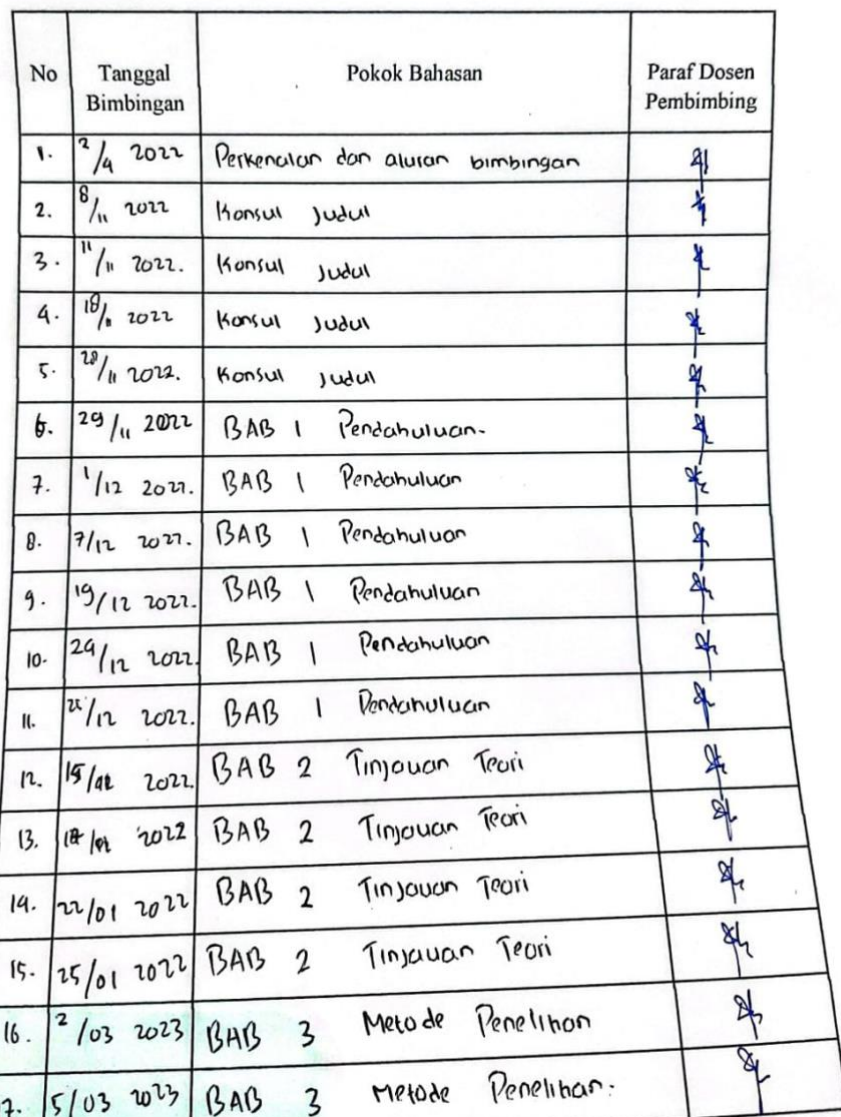 No Tanggal Bimbingan Pokok Bahasan Paraf Dosen Pembimbing
1. 2/4 2022 Perkenalan dan aluran bimbingan
2. 8/11 2022 Konsul Judul
3. 11/11 2022. Konsul Judul
4. 18/11 2022 Konsul Judul
5. 28/11 2022. Konsul Judul
6. 29/11 2022 BAB 1 Pendahuluan.
7. 1/12 2022. BAB 1 Pendahuluan
8. 7/12 2022. BAB 1 Pendahuluan
9. 19/12 2022. BAB 1 Pendahuluan
10. 24/12 2022. BAB 1 Pendahuluan
11. /12 2022. BAB 1 Pendahuluan
12. 2022. BAB 2 Tinjauan Teori
13. 2022 BAB 2 Tinjauan Teori
14. 22/01 2022 BAB 2 Tinjauan Teori
15. 25/01 2022 BAB 2 Tinjauan Teori
16. 2/03 2023 BAB 3 Metode Penelitian
7. 5/03 2023 BAB 3 Metode Penelitian.